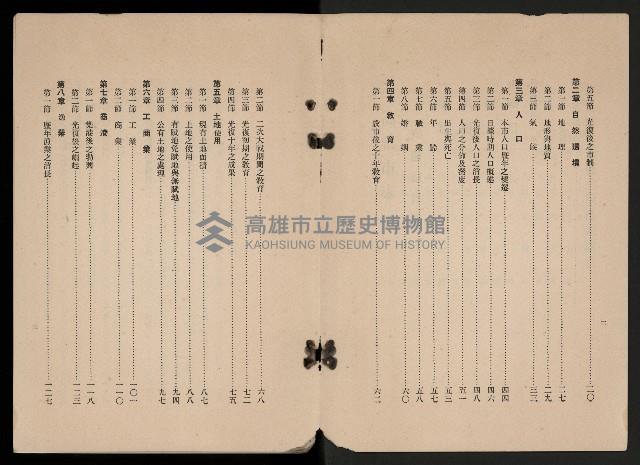 第五節 光復後之市制 二〇
第二章 自然環境
第一節 地理 二七
第二節 地形與地質 二九
第三節 氣候 三三
第三章 人口
第一節 本市人口歷年之變遷 四四
第二節 日據時期人口概述 四六
第三節 光復後人口之消長 四八
第四節 人口之分佈及密度 五一
第五節 出生與死亡 五三
第六節 年齡 五七
第七節 職業 五八
第八節 婚姻 六〇
第四章 教育
第一節 設市後之十年教育 六二
第二節 二次大戰期間之教育 六八
第三節 光復初期之教育 七二
第四節 光復十年之成果 七五
第五章 土地使用
第一節 現有土地面積 八七
第二節 土地之使用 八八
第三節 有賦地免賦地與無賦地 九四
第四節 公有土地之處理 九七
第六章 工商業
第一節 工業 一〇一
第二節 商業 一一〇
第七章 港灣
第一節 築港後之動興 一一八
第二節 光復後之崛起 一二三
第八章 漁業
第一節 歷年漁業之消長 一二七
高雄市立歷史博物館
KAOHSIUNG MUSEUM OF HISTORY